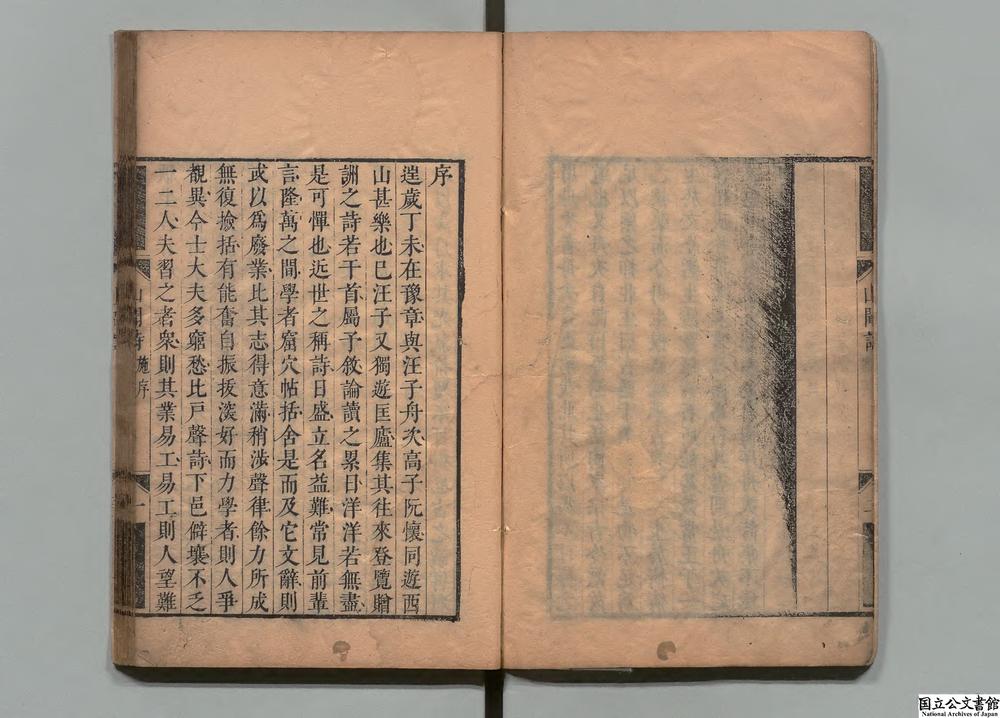 序
遑歲丁未在豫章與汪子舟次高子阮懷同遊西
山甚樂也已汪子又獨遊匡廬集其往來登覽贈
詶之詩若干首屬予敘論讀之累日洋洋若無盡
是可憚也近世之稱詩日盛立名益難常見前輩
言隆萬之間學者窟穴帖括舍是而及它文辭則
或以為廢業比其志得意滿稍涉聲律餘力所成
無復撿括有能奮自振拔深好而力學者則人爭
覩異今士大夫多窮愁比戶聲詩下邑僻壤不乏
一二人夫習之者衆則其業易工易工則人望難
山聞詩 施序
一
山聞詩
国立公文書館
National Archives of Japan